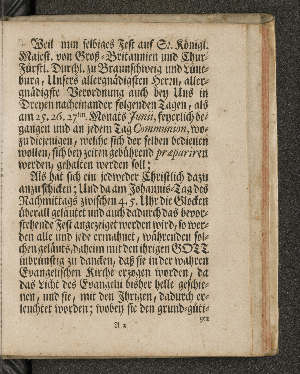 Weil nun selbiges Fest auf Sr. Königl.
Majest. von Groß-Britannien und Chur-
Fürstl. Durchl. zu Braunschweig und Lüne-
burg, Unsers allergnädigsten Herrn, aller-
gnädigste Verordnung auch bey Uns in
Dreyen nacheinander folgenden Tagen, als
am 25. 26. 27ten. Monats Junii, feyerlich be-
gangen und an jedem Tag Communion, wo-
zu diejenigen, welche sich der selben bedienen
wollen, sich bey zeiten gebührend præpariren
werden, gehalten werden soll;
Als hat sich ein jedweder Christlich dazu
anzuschicken; Und da am Johannis-Tag des
Nachmittags zwischen 4. 5. Uhr die Glocken
überall geläutet und auch dadurch das bevor-
stehende Fest angezeiget werden wird, so wer-
den alle und jede ermahnet, währenden sol-
chen geläuts, daheim mit den ihrigen GOTT
inbrünstig zu dancken, daß sie in der wahren
Evangelischen Kirche erzogen worden, da
das Licht des Evangelii bisher helle geschie-
nen, und sie, mit den Ihrigen, dadurch er-
leuchtet worden; wobey sie den grund-güti-
A 2
gen